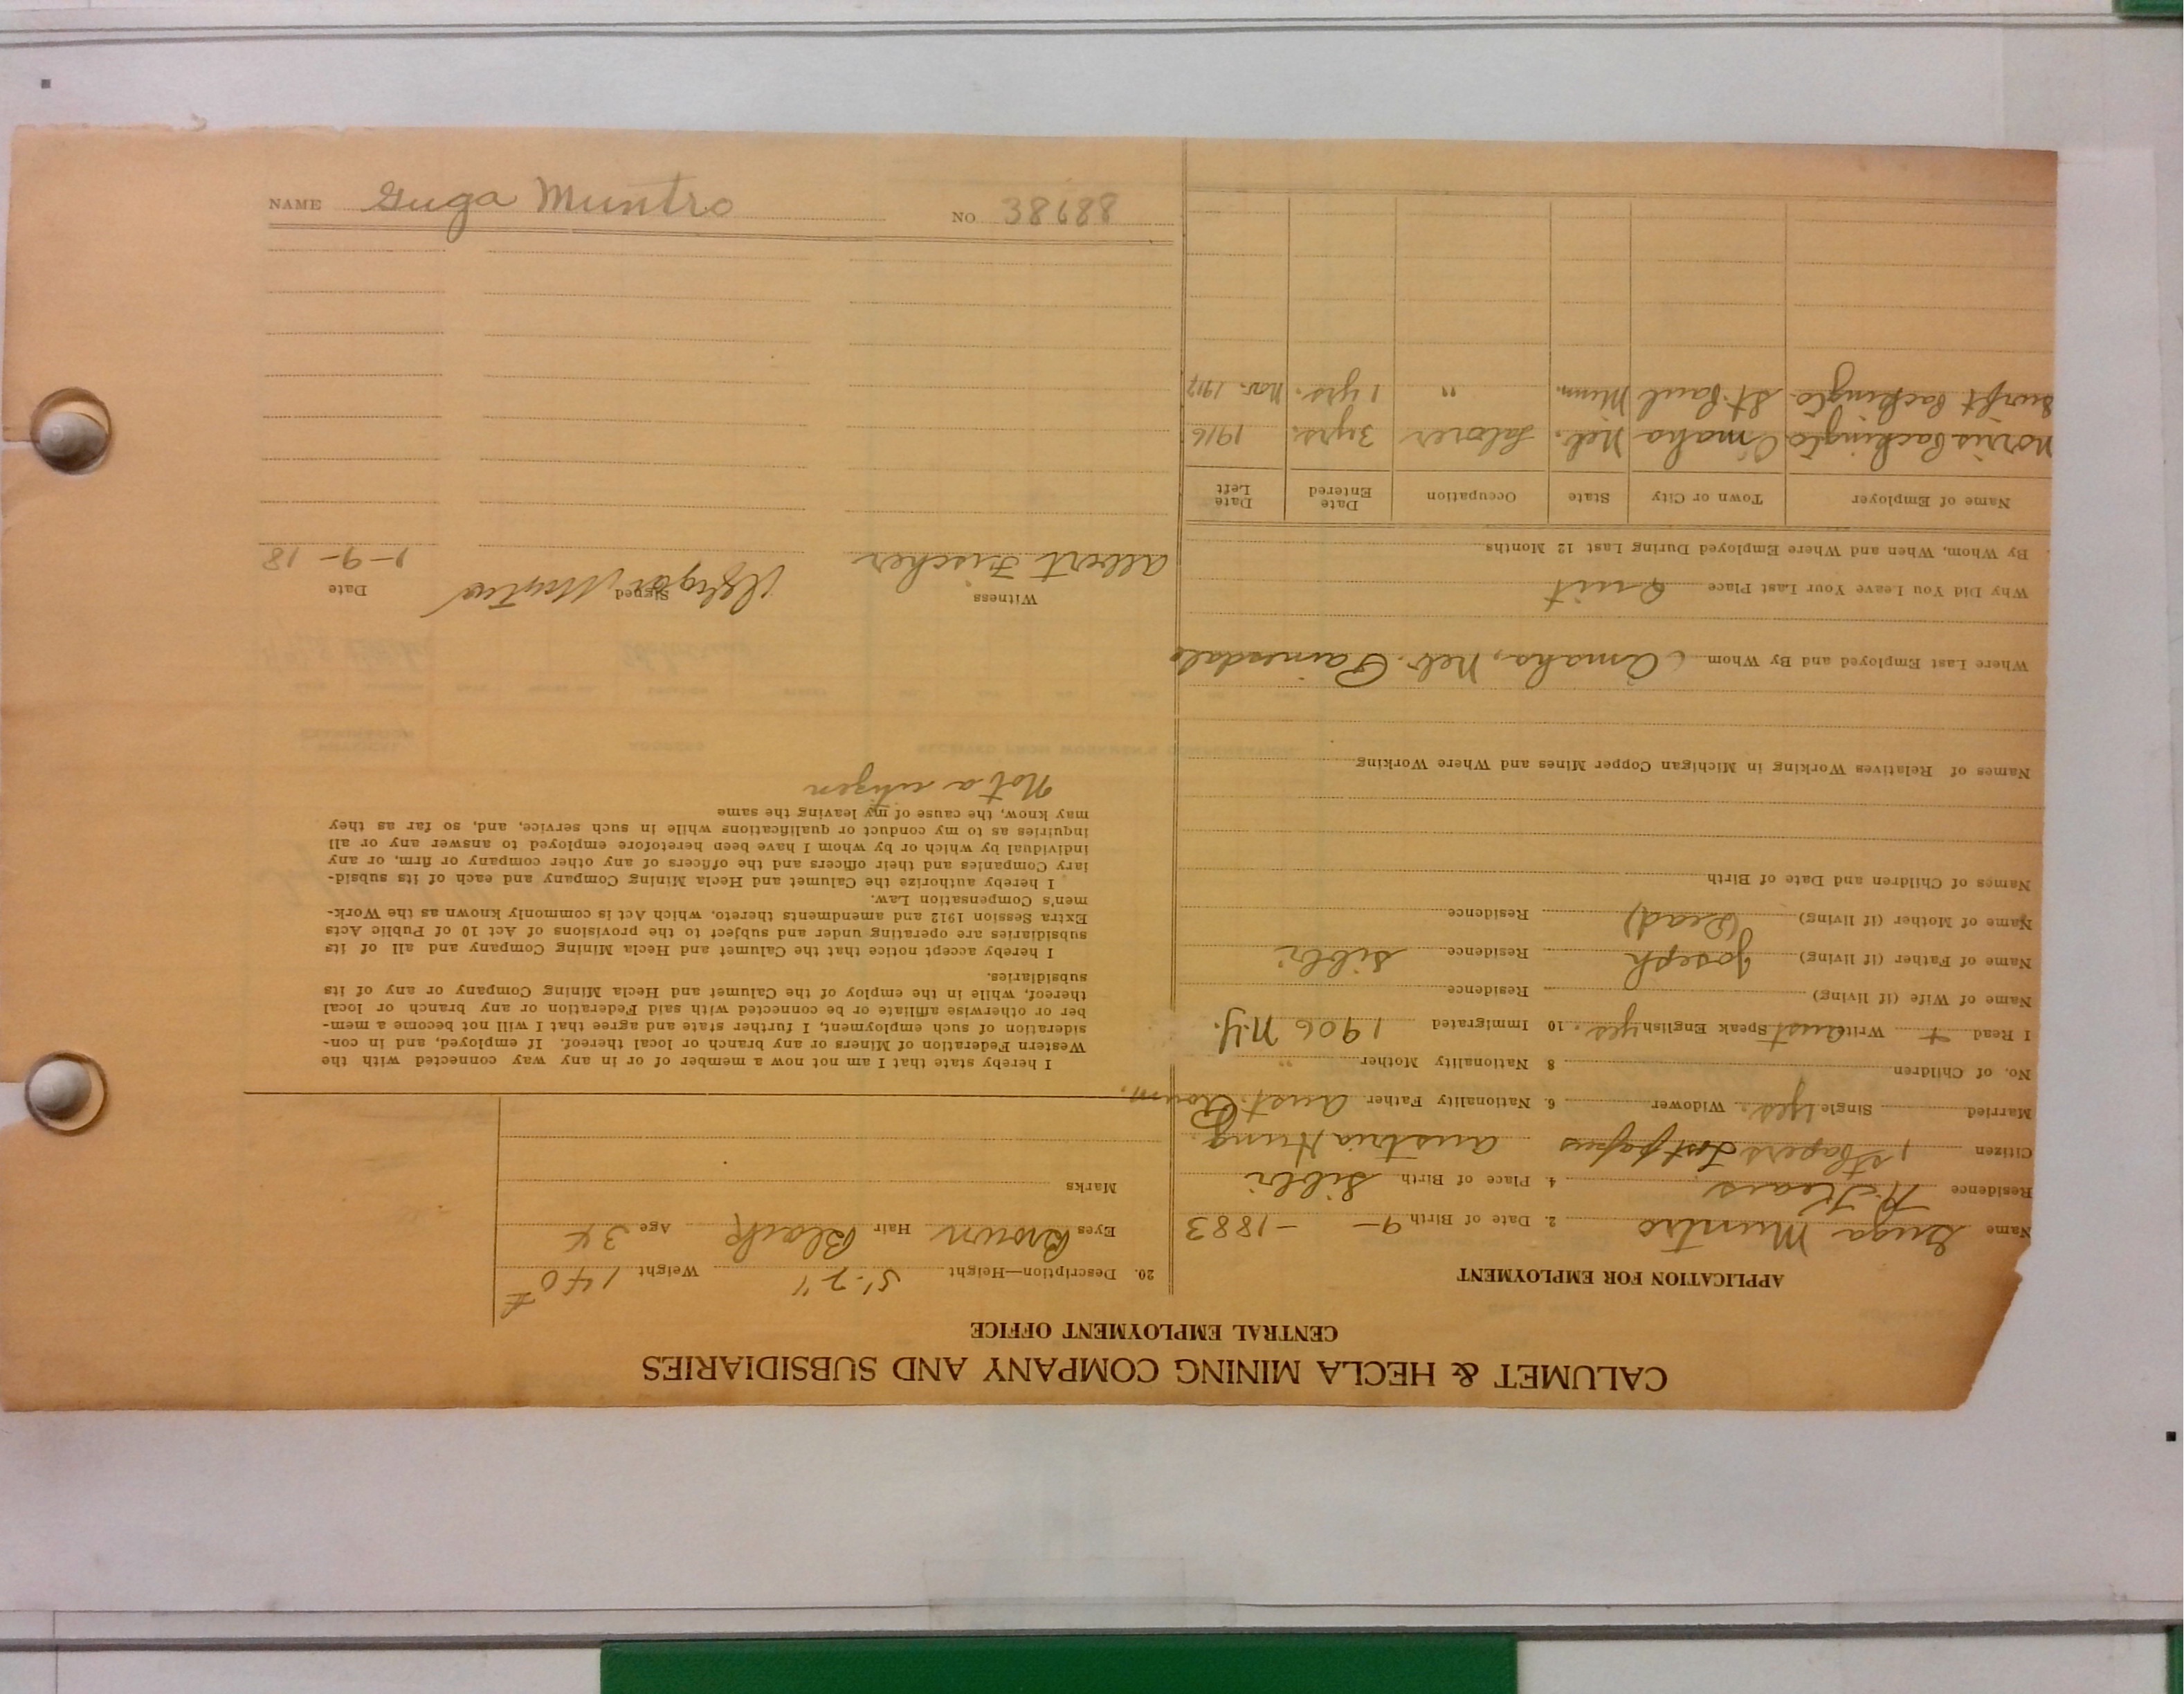 CALUMET & HECLA MINING COMPANY AND SUBSIDIARIES
CENTRAL EMPLOYMENT OFFICE
APPLICATION FOR EMPLOYMENT
Name Guga Muntro 2. Date of Birth 9 - - 1883
Residence N. Kears 4. Place of Birth Silbi
Citizen 1st Papers Lost papers Austria Hung.
Married Single yes. Widower 6. Nationality Father Aust. Roum.
No. of Children 8 Nationality Mother "
I Read + Write Aust Speak English yes. 10 Immigrated 1906 N.Y.
Name of Wife (if living) Residence
Name of Father (if living) Joseph Residence Silbi
Name of Mother (if living) (Dead) Residence
Names of Children and Date of Birth
Names of Relatives Working in Michigan Copper Mines and Where Working
Where Last Employed and By Whom (Omaha, Neb. Painesdale
Why Did You Leave Your Last Place Quit
By Whom, When and Where Employed During Last 12 Months
Name of Employer Town or City State Occupation Date Entered Date Left
Norris Packing Co Omaha Neb. Laborer 3 yrs. 1916
Swift Packing Co. St. Paul Minn. " 1 yrs. Nov. 1917
20. Description—Height 5'-7" Weight 140 #
Eyes Brown Hair Black Age 34
Marks
I hereby state that I am not now a member of or in any way connected with the
Western Federation of Miners or any branch or local thereof. If employed, and in con-
sideration of such employment, I further state and agree that I will not become a mem-
ber or otherwise affiliate or be connected with said Federation or any branch or local
thereof, while in the employ of the Calumet and Hecla Mining Company or any of its
subsidiaries.
I hereby accept notice that the Calumet and Hecla Mining Company and all of its
subsidiaries are operating under and subject to the provisions of Act 10 of Public Acts
Extra Session 1912 and amendments thereto, which Act is commonly known as the Work-
men's Compensation Law.
I hereby authorize the Calumet and Hecla Mining Company and each of its subsid-
iary Companies and their officers and the officers of any other company or firm, or any
individual by which or by whom I have been heretofore employed to answer any or all
inquiries as to my conduct or qualifications while in such service, and, so far as they
may know, the cause of my leaving the same
Not a citizen
Witness Signed Date
Albert Fischer 1-9-18
NAME Guga Muntro NO. 38688